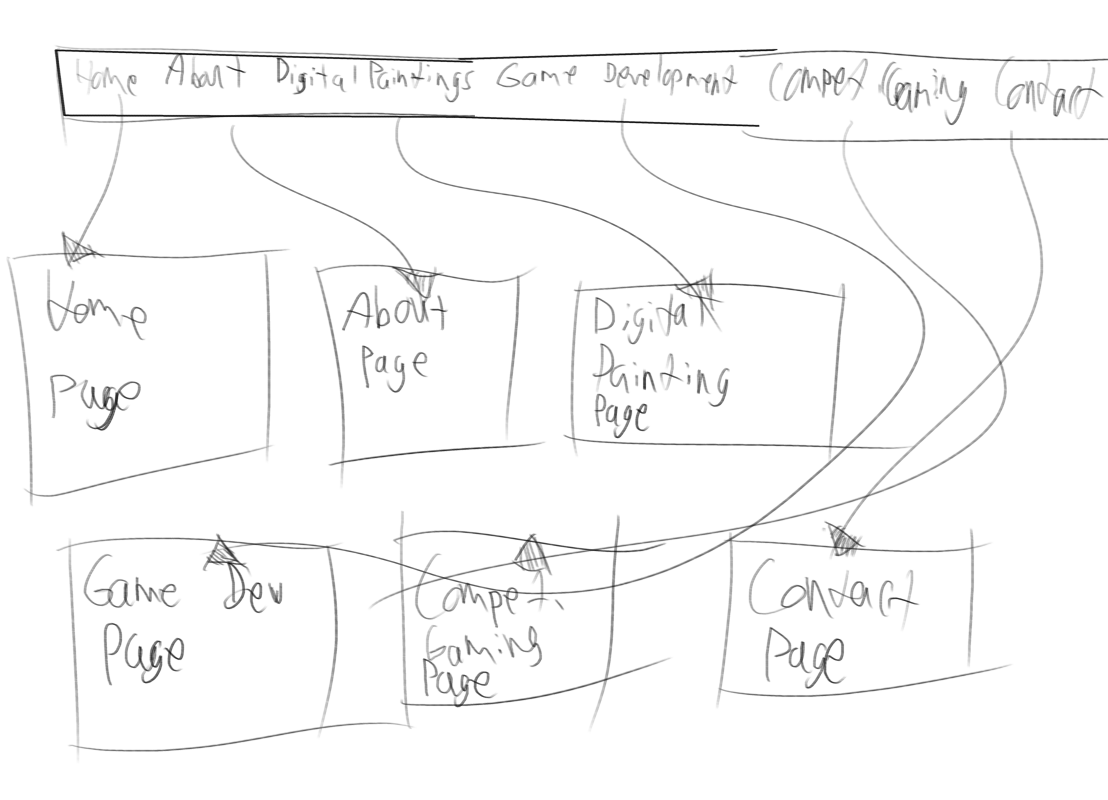 Home About Digital Paintings Game Development Compet Gaming Contact
Home
Page
About
Page
Digital
Painting
Page
Game Dev
Page
Competi.
Gaming
Page
Contact
Page